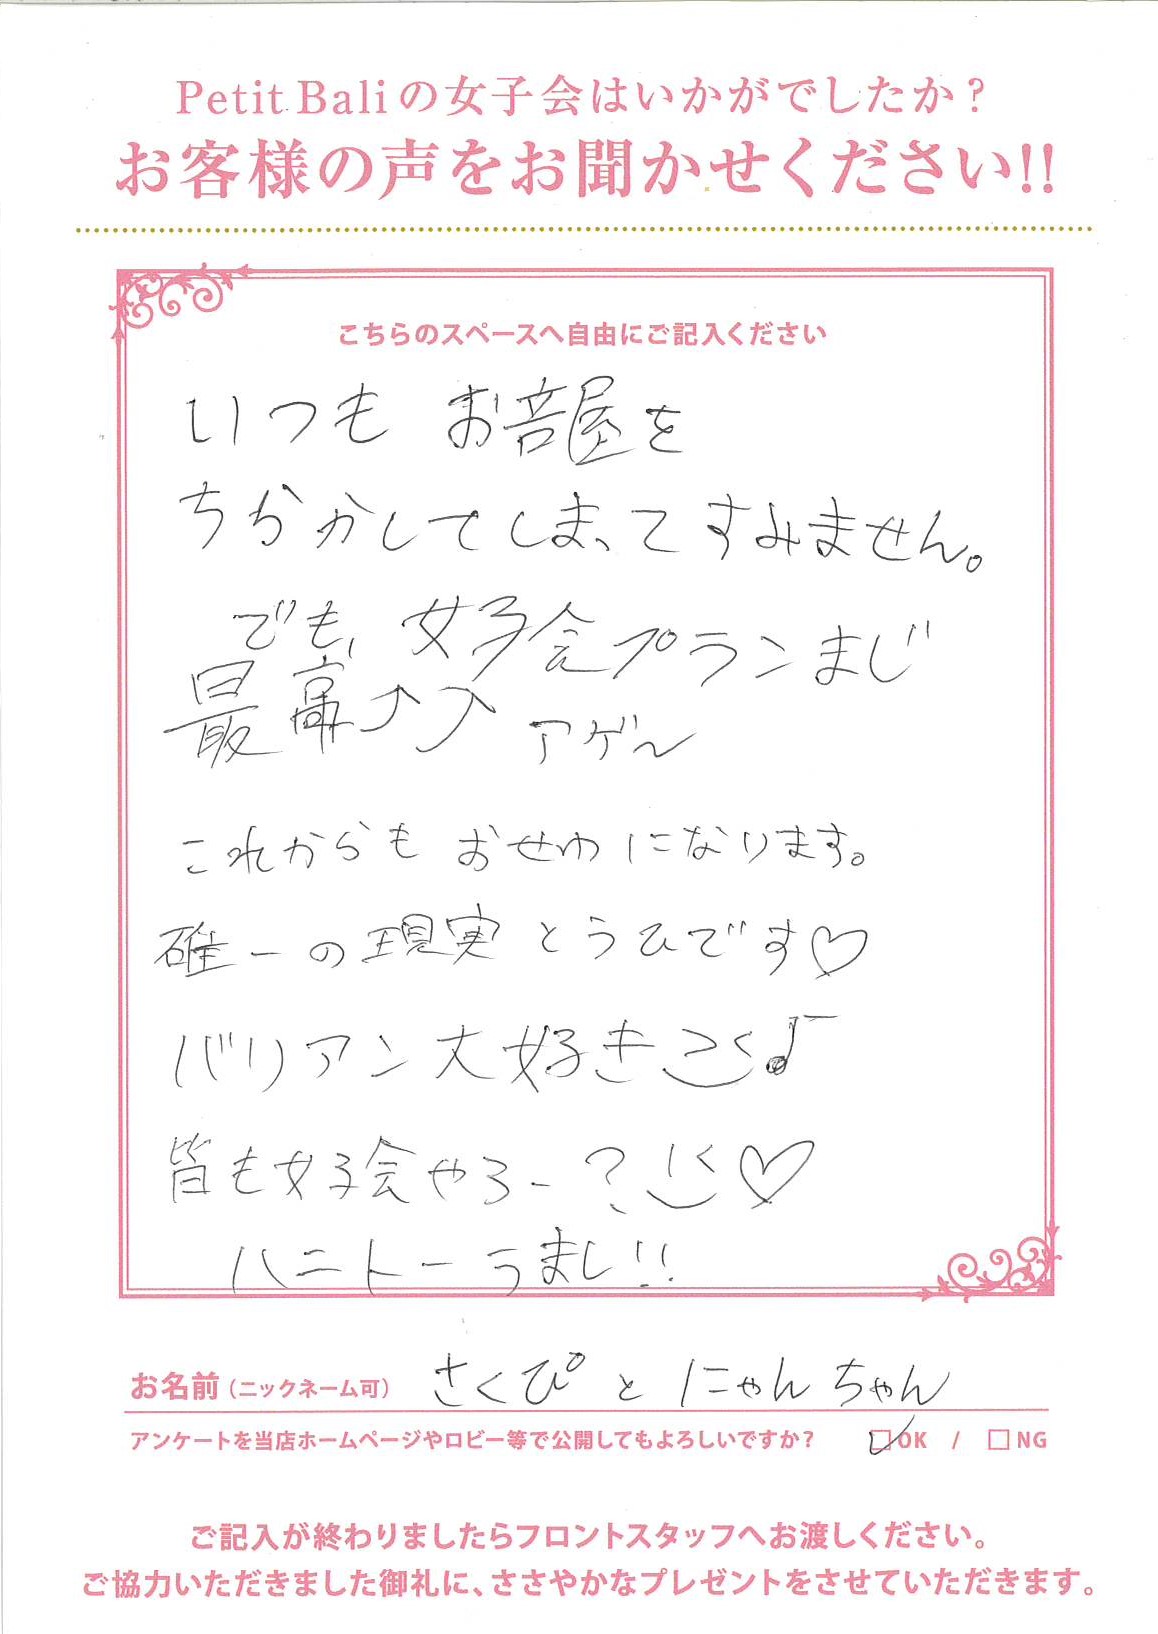 Petit Baliの女子会はいかがでしたか？
お客様の声をお聞かせください!!
こちらのスペースへ自由にご記入ください
いつも お部屋を
ちらかしてしまって すみません。
でも、女子会プランまじ
最高↑↑ アゲ〜
これからも おせわになります。
確一の現実とうひです♡
バリアン大好き ♪
皆も女子会やろー？ ♡
ハニトーうまし!!
お名前（ニックネーム可） さくぴ と にゃんちゃん
アンケートを当店ホームページやロビー等で公開してもよろしいですか？ ☑OK / □NG
ご記入が終わりましたらフロントスタッフへお渡しください。
ご協力いただきました御礼に、ささやかなプレゼントをさせていただきます。